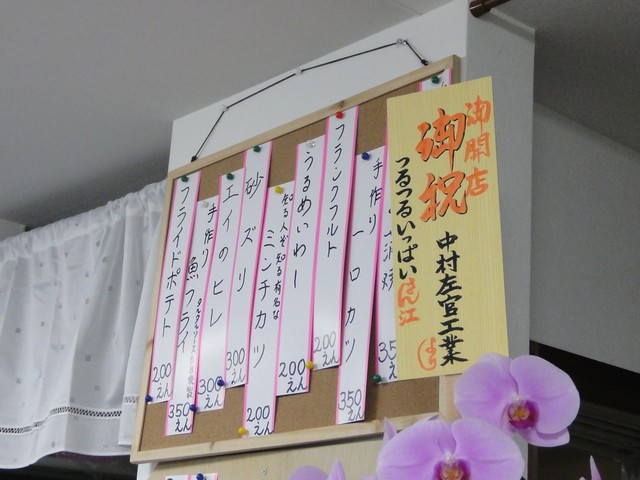 御開店
御祝
つるつるいっぱいさん江
中村左官工業
より
35
手作り
一口カツ
350えん
フランクフルト
200えん
うるめいわし
200えん
知る人ぞ知る有名な
ミンチカツ
200えん
砂ズリ
300えん
エイのヒレ
300えん
手作り
魚フライ
350えん
フライドポテト
200えん